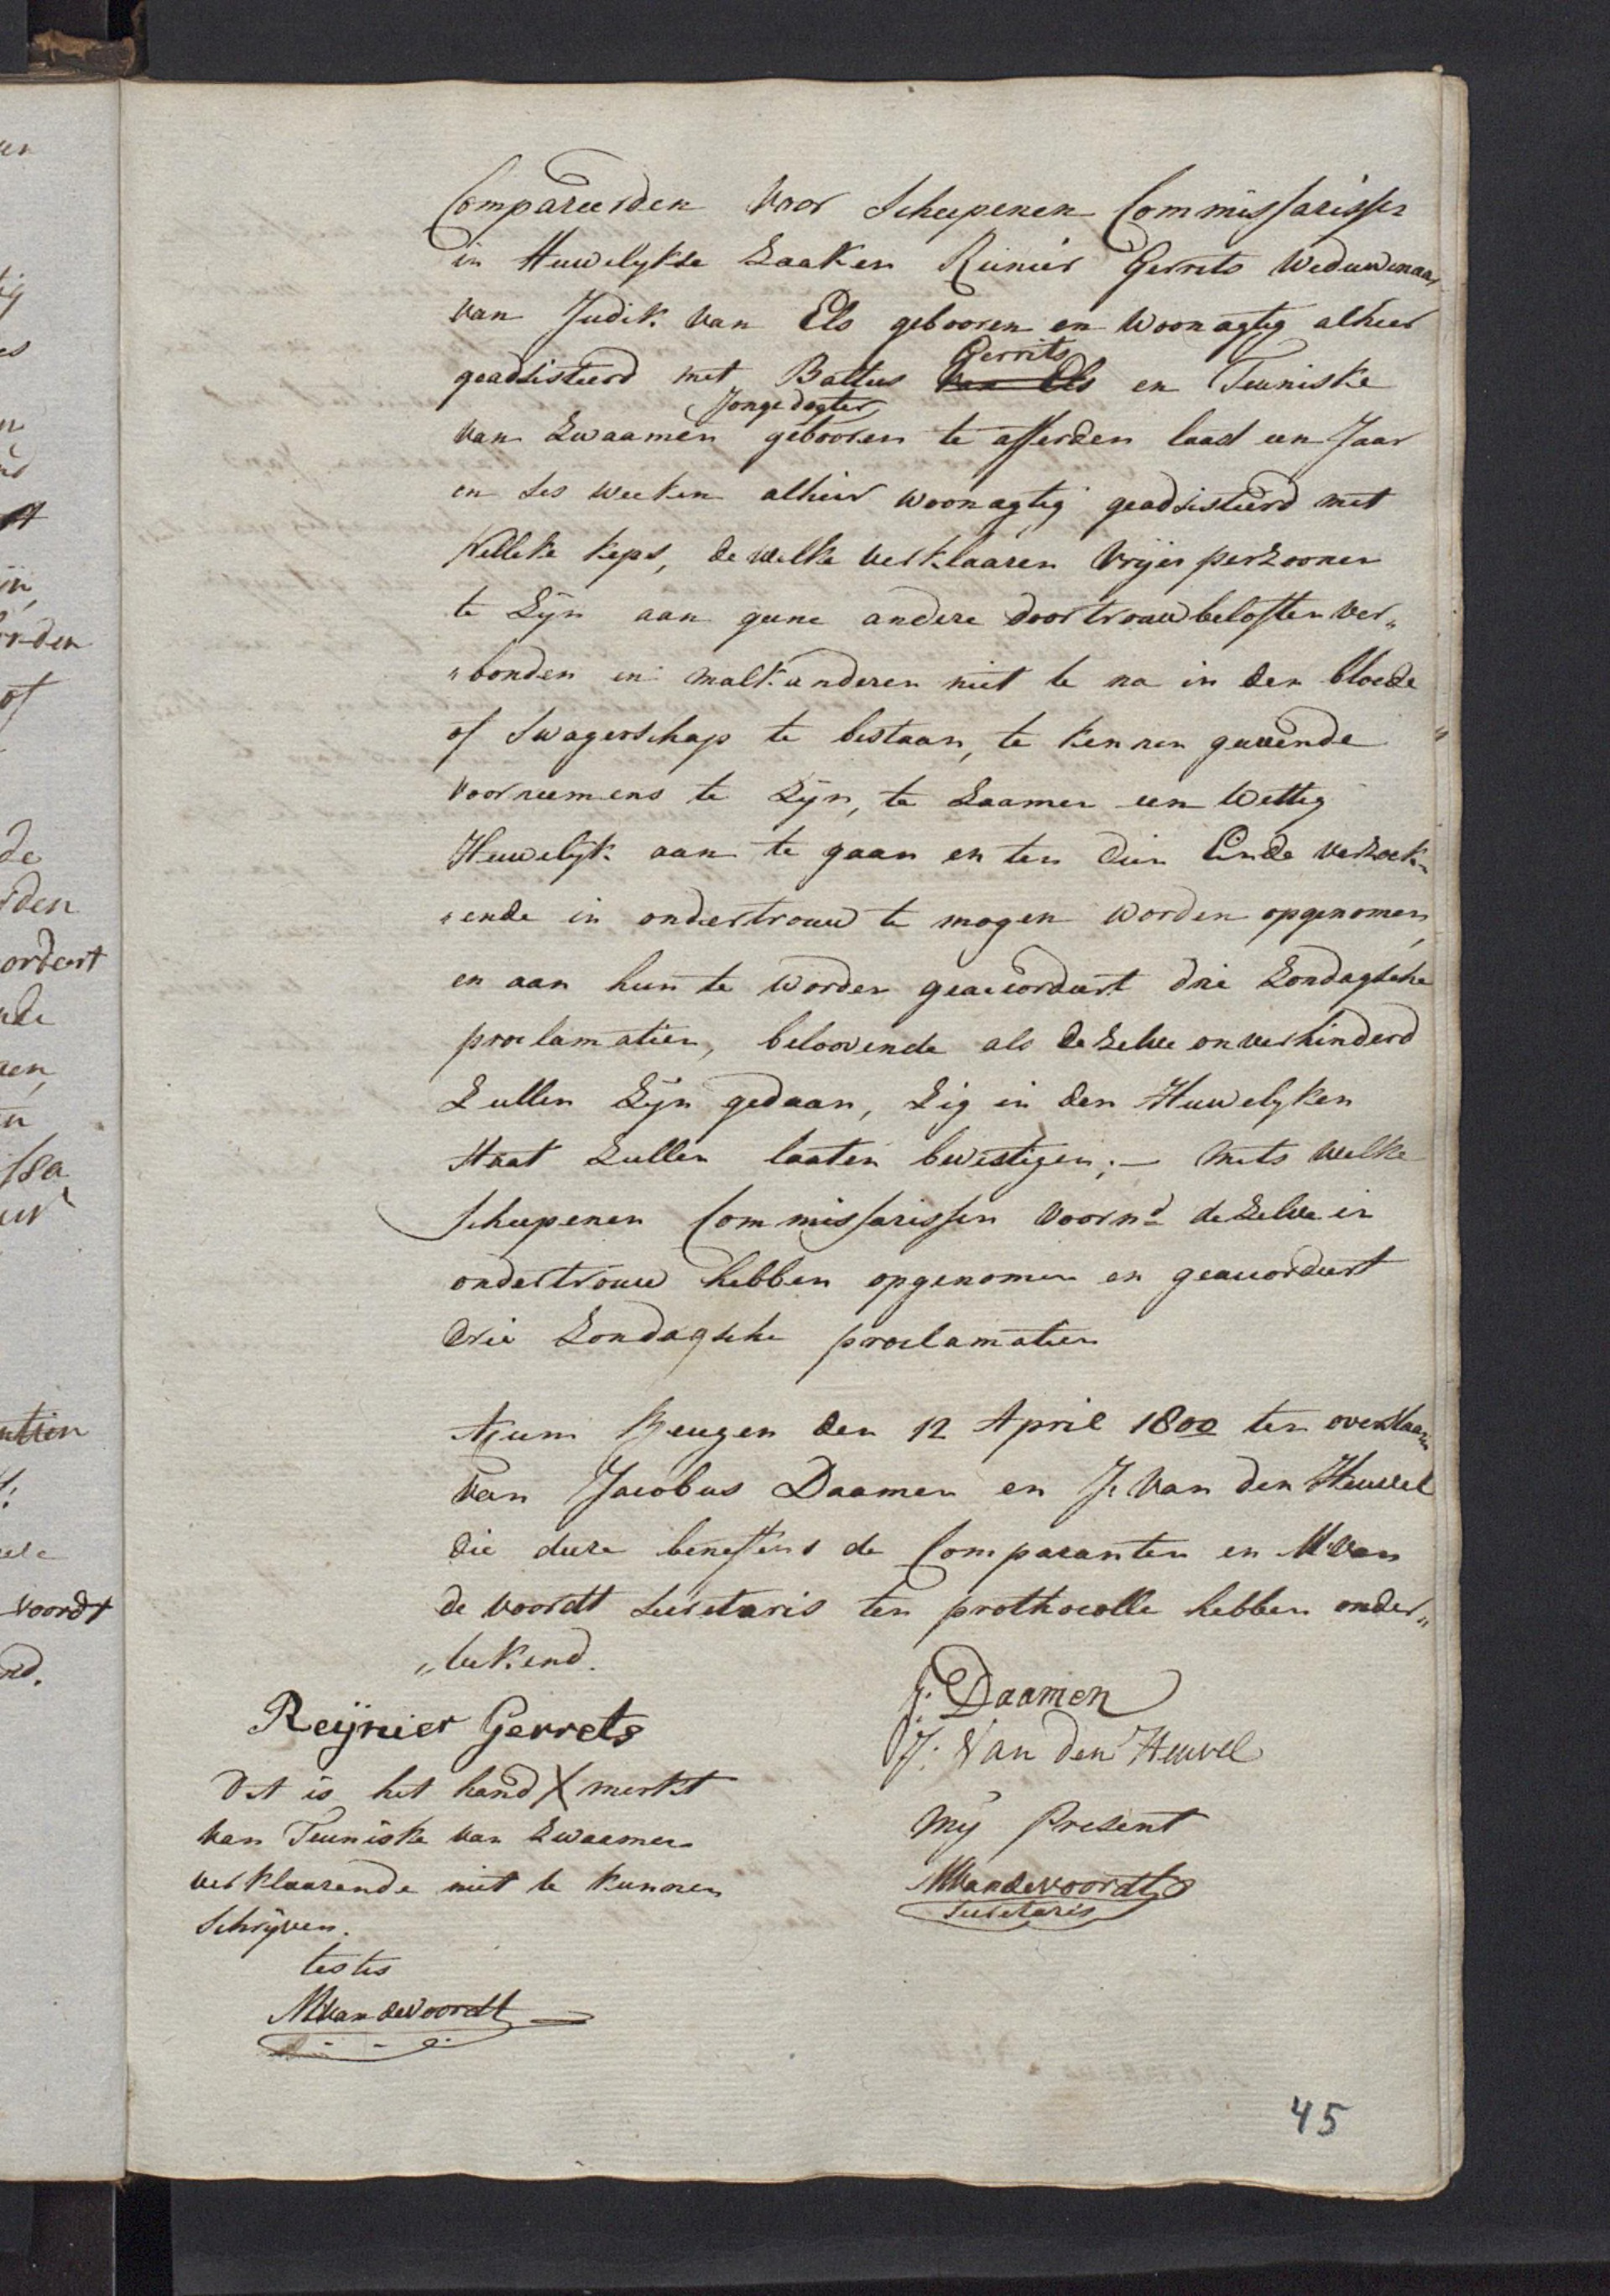 Compareerden voor Scheepenen Commissarissen
in Huwelykse Zaaken Reinier Gerrits Weduwenaar
van Judik van Els gebooren en Woonagtig alhier
geadsisteerd met Battus van Els Gerrits en Teuniske
van Zwaamen Jonge dogter gebooren te Afferden laast een Jaar
en ses weeken alhier woonagtig geadsisteerd met
Willeke Keps, de welke verklaaren Vrije perzoonen
te Zijn aan geene andere door trouwbeloften ver„
„bonden en malkanderen niet te na in den bloede
of Swagerschap te bestaan, te kennen geevende
voorneemens te Zijn, te Zaamen een Wettig
Huwelijk aan te gaan en ten dien Einde verzoek„
„ende in ondertrouw te mogen worden opgenomen,
en aan hun te worden geaccordeert drie Zondagsche
proclamatien, beloovende als dezelve onverhinderd
Zullen Zijn gedaan, Zig in den Huwelyken
Staat Zullen laaten bevestigen; — mits welke
Scheepenen Commissarissen voornd dezelve in
ondertrouw hebben opgenomen en geaccordeert
drie Zondagsche proclamatien
Actum Beugen den 12 April 1800 ten overstaan
van Jacobus Daamen en J. van den Heuvel
die deeze beneffens de Comparanten en M van
de voordt Secretaris ten prothocolle hebben onder„
„teekend.
J: Daamen
Reijnier Gerrets
J: Van den Heuvel
Dit is het hand X merkt
van Teuniske van Zwaamen
verklaarende niet te kunnen
Schrijven.
mij Present
MVandevoordt
Secretaris
testis
MvandeVoordt
45
ier
ig
es
n
in
orden
of
de
rden
ordeert
nde
en
ssa
voordt
nd.